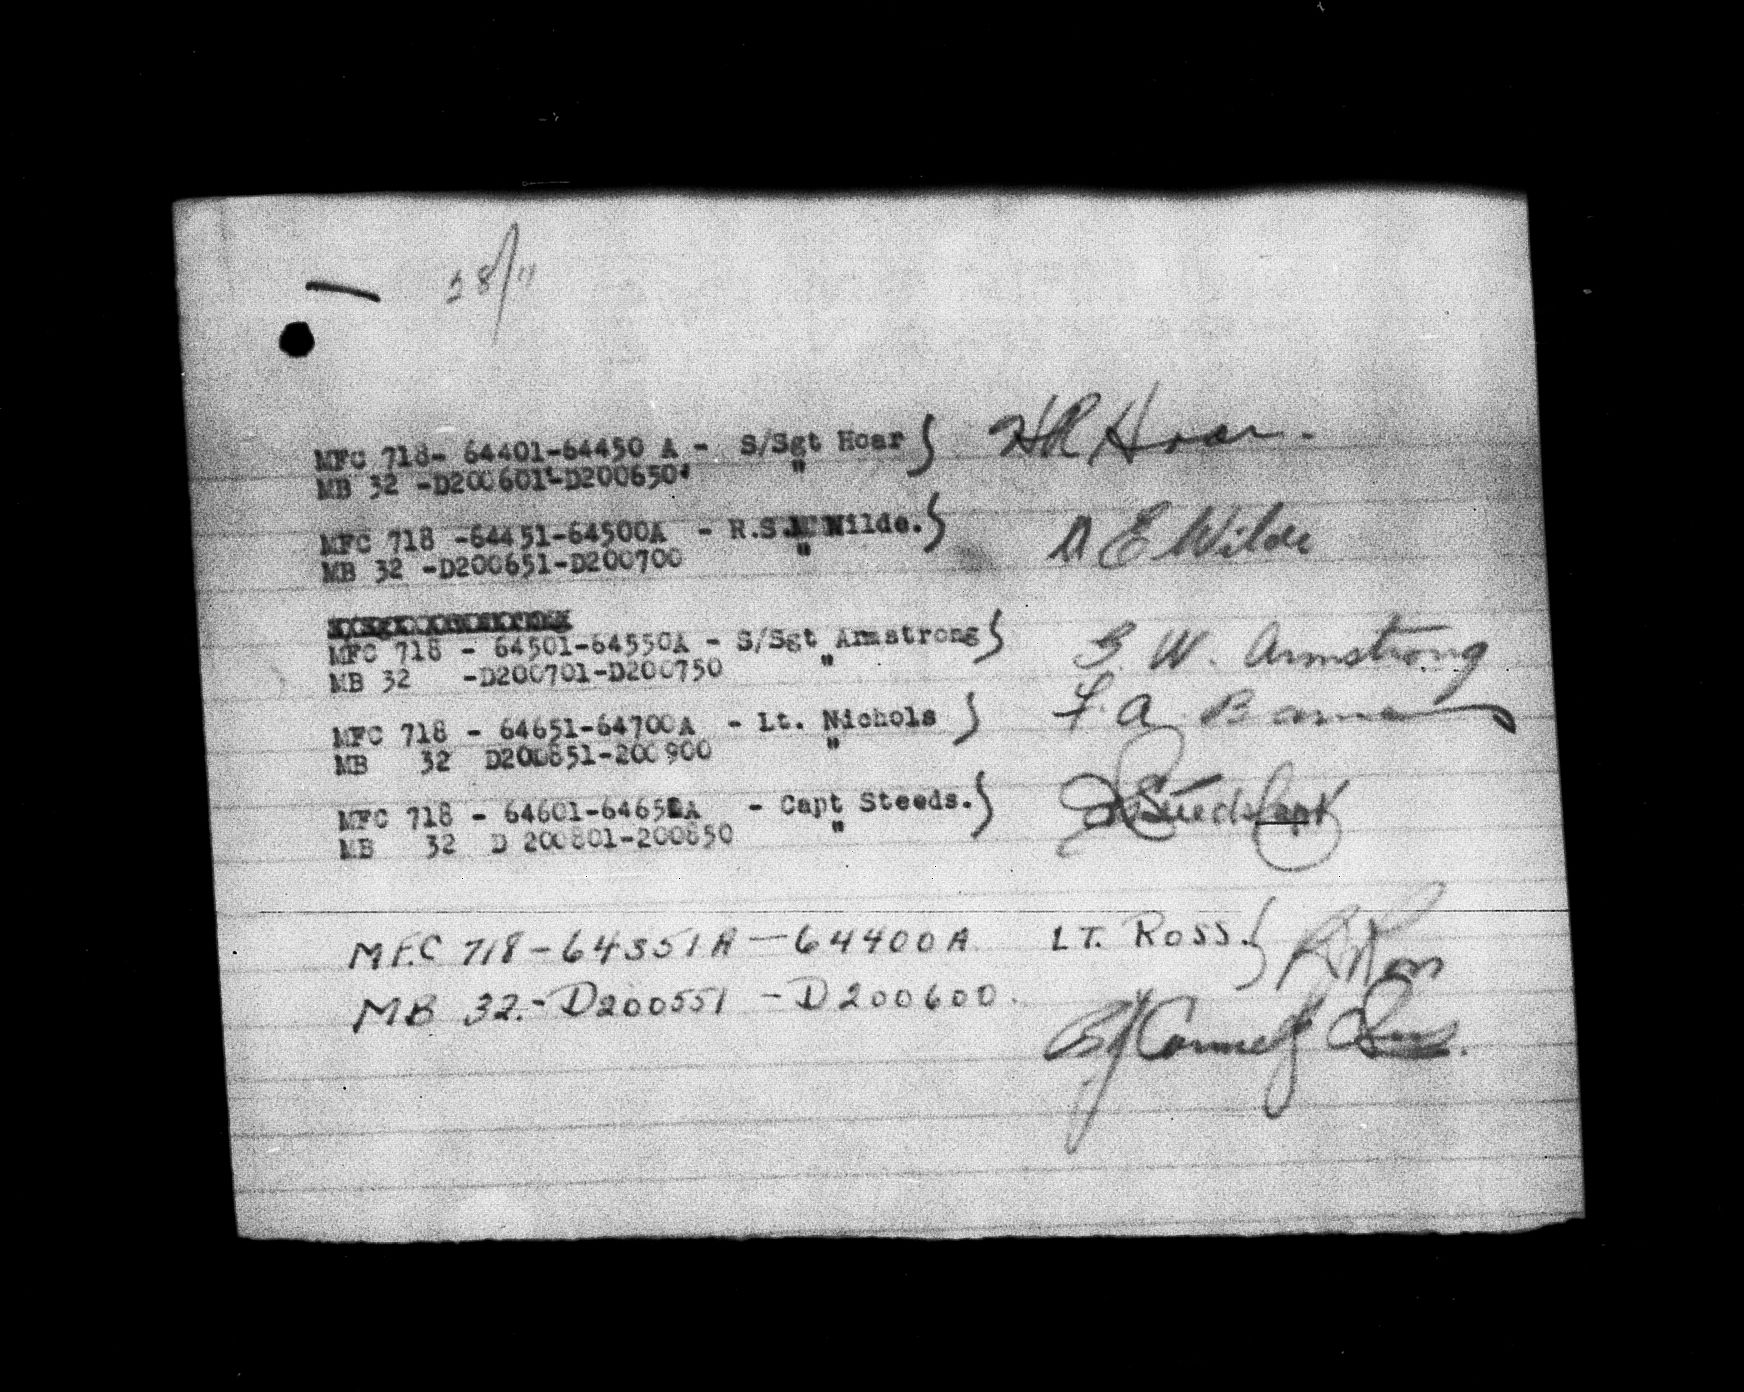 28/11
MFC 718- 64401-64450 A - S/Sgt Hoar } H R Hoar.
MB 32 -D200601-D200650 "
MFC 718 -64451-64500A - R.S.M Wilde. } D E Wilde
MB 32 -D200651-D200700 "
MFC 718 - 64501-64550A - S/Sgt Armstrong } G. W. Armstrong
MB 32 -D200701-D200750 "
F. A.
MFC 718 - 64651-64700A - Lt. Nichols }
MB 32 D200851-200900 "
MFC 718 - 64601-64650A - Capt Steeds. } Steeds Capt
MB 32 D 200801-200850 "
MFC 718-64351A-64400A LT. ROSS. } R Ross
MB 32.-D200551 -D200600.